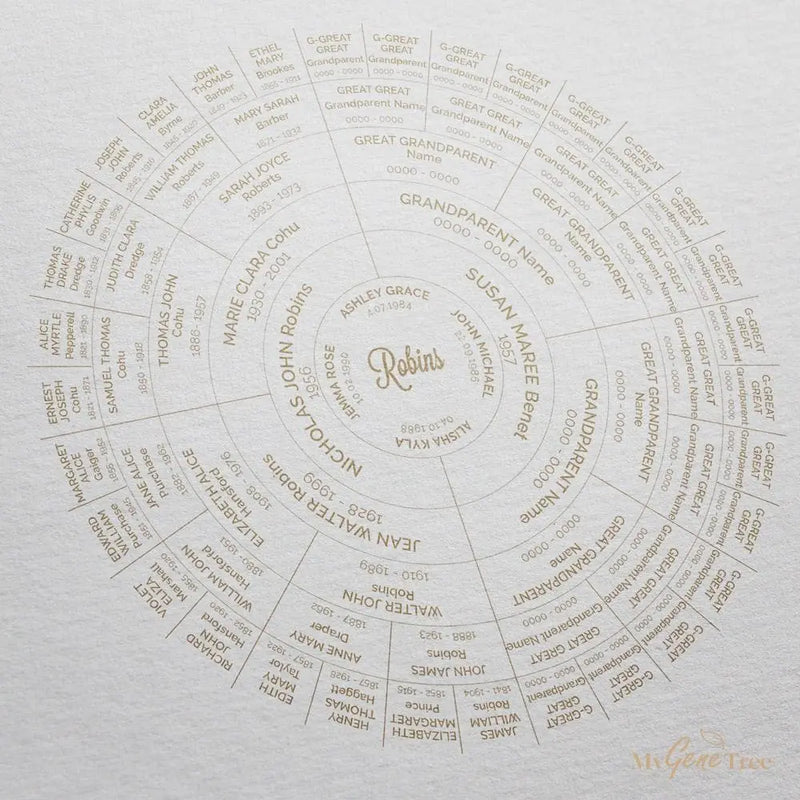 Robins
ASHLEY GRACE
4.07.1984
JOHN MICHAEL
22.09.1986
ALISHA KYLA
04.10.1988
JEMMA ROSE
10.02.1990
NICHOLAS JOHN Robins
1956
SUSAN MAREE Benet
1957
JEAN WALTER Robins
1928 - 1999
MARIE CLARA Cohu
1930 - 2001
GRANDPARENT Name
0000 - 0000
GRANDPARENT Name
0000 - 0000
WALTER JOHN
Robins
1910 - 1989
ELIZABETH ALICE
Hansford
1908 - 1976
THOMAS JOHN
Cohu
1886 - 1957
SARAH JOYCE
Roberts
1893 - 1973
GREAT GRANDPARENT
Name
0000 - 0000
GREAT GRANDPARENT
Name
0000 - 0000
GREAT GRANDPARENT
Name
0000 - 0000
GREAT GRANDPARENT
Name
0000 - 0000
JOHN JAMES
Robins
1888 - 1923
ANNE MARY
Draper
1887 - 1952
WILLIAM JOHN
Hansford
1880 - 1951
JANE ALICE
Purchase
1882 - 1962
SAMUEL THOMAS
Cohu
1840 - 1918
JUDITH CLARA
Dredge
1858 - 1934
WILLIAM THOMAS
Roberts
1867 - 1949
MARY SARAH
Barber
1871 - 1932
GREAT GREAT
Grandparent Name
0000 - 0000
GREAT GREAT
Grandparent Name
0000 - 0000
GREAT GREAT
Grandparent Name
0000 - 0000
GREAT GREAT
Grandparent Name
0000 - 0000
GREAT GREAT
Grandparent Name
0000 - 0000
GREAT GREAT
Grandparent Name
0000 - 0000
GREAT GREAT
Grandparent Name
0000 - 0000
GREAT GREAT
Grandparent Name
0000 - 0000
JAMES
WILLIAM
Robins
1841 - 1904
ELIZABETH
MARGARET
Prince
1852 - 1915
HENRY
THOMAS
Haggett
1857 - 1928
EDITH
MARY
Taylor
1857 - 1923
RICHARD
JOHN
Hansford
1852 - 1920
VIOLET
ELIZA
Marshall
1865 - 1920
EDWARD
WILLIAM
Purchase
1861 - 1945
MARGARET
ALICE
Gaiger
ERNEST
JOSEPH
Cohu
1821 - 1871
ALICE
MYRTLE
Pepperell
1821 - 1890
THOMAS
DRAKE
Dredge
1839 - 1912
CATHERINE
PHYLIS
Goodwin
1831 - 1896
JOSEPH
JOHN
Roberts
CLARA
AMELIA
Byrne
JOHN
THOMAS
Barber
ETHEL
MARY
Brookes
G-GREAT
GREAT
Grandparent
0000 - 0000
G-GREAT
GREAT
Grandparent
0000 - 0000
G-GREAT
GREAT
Grandparent
0000 - 0000
G-GREAT
GREAT
Grandparent
0000 - 0000
G-GREAT
GREAT
Grandparent
0000 - 0000
G-GREAT
GREAT
Grandparent
0000 - 0000
G-GREAT
GREAT
Grandparent
0000 - 0000
G-GREAT
GREAT
Grandparent
0000 - 0000
G-GREAT
GREAT
Grandparent
0000 - 0000
G-GREAT
GREAT
Grandparent
0000 - 0000
G-GREAT
GREAT
Grandparent
0000 - 0000
G-GREAT
GREAT
Grandparent
0000 - 0000
G-GREAT
GREAT
Grandparent
0000 - 0000
G-GREAT
GREAT
Grandparent
0000 - 0000
G-GREAT
GREAT
Grandparent
0000 - 0000
G-GREAT
GREAT
Grandparent
0000 - 0000
My Gene Tree